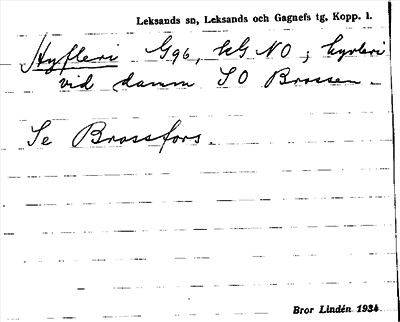 Leksands sn, Leksands och Gagnefs tg, Kopp. l.
Hyfleri G96, kG NO, hyvleri
vid damm SO Brossen.
Se Brossfors.
Bror Lindén 1934